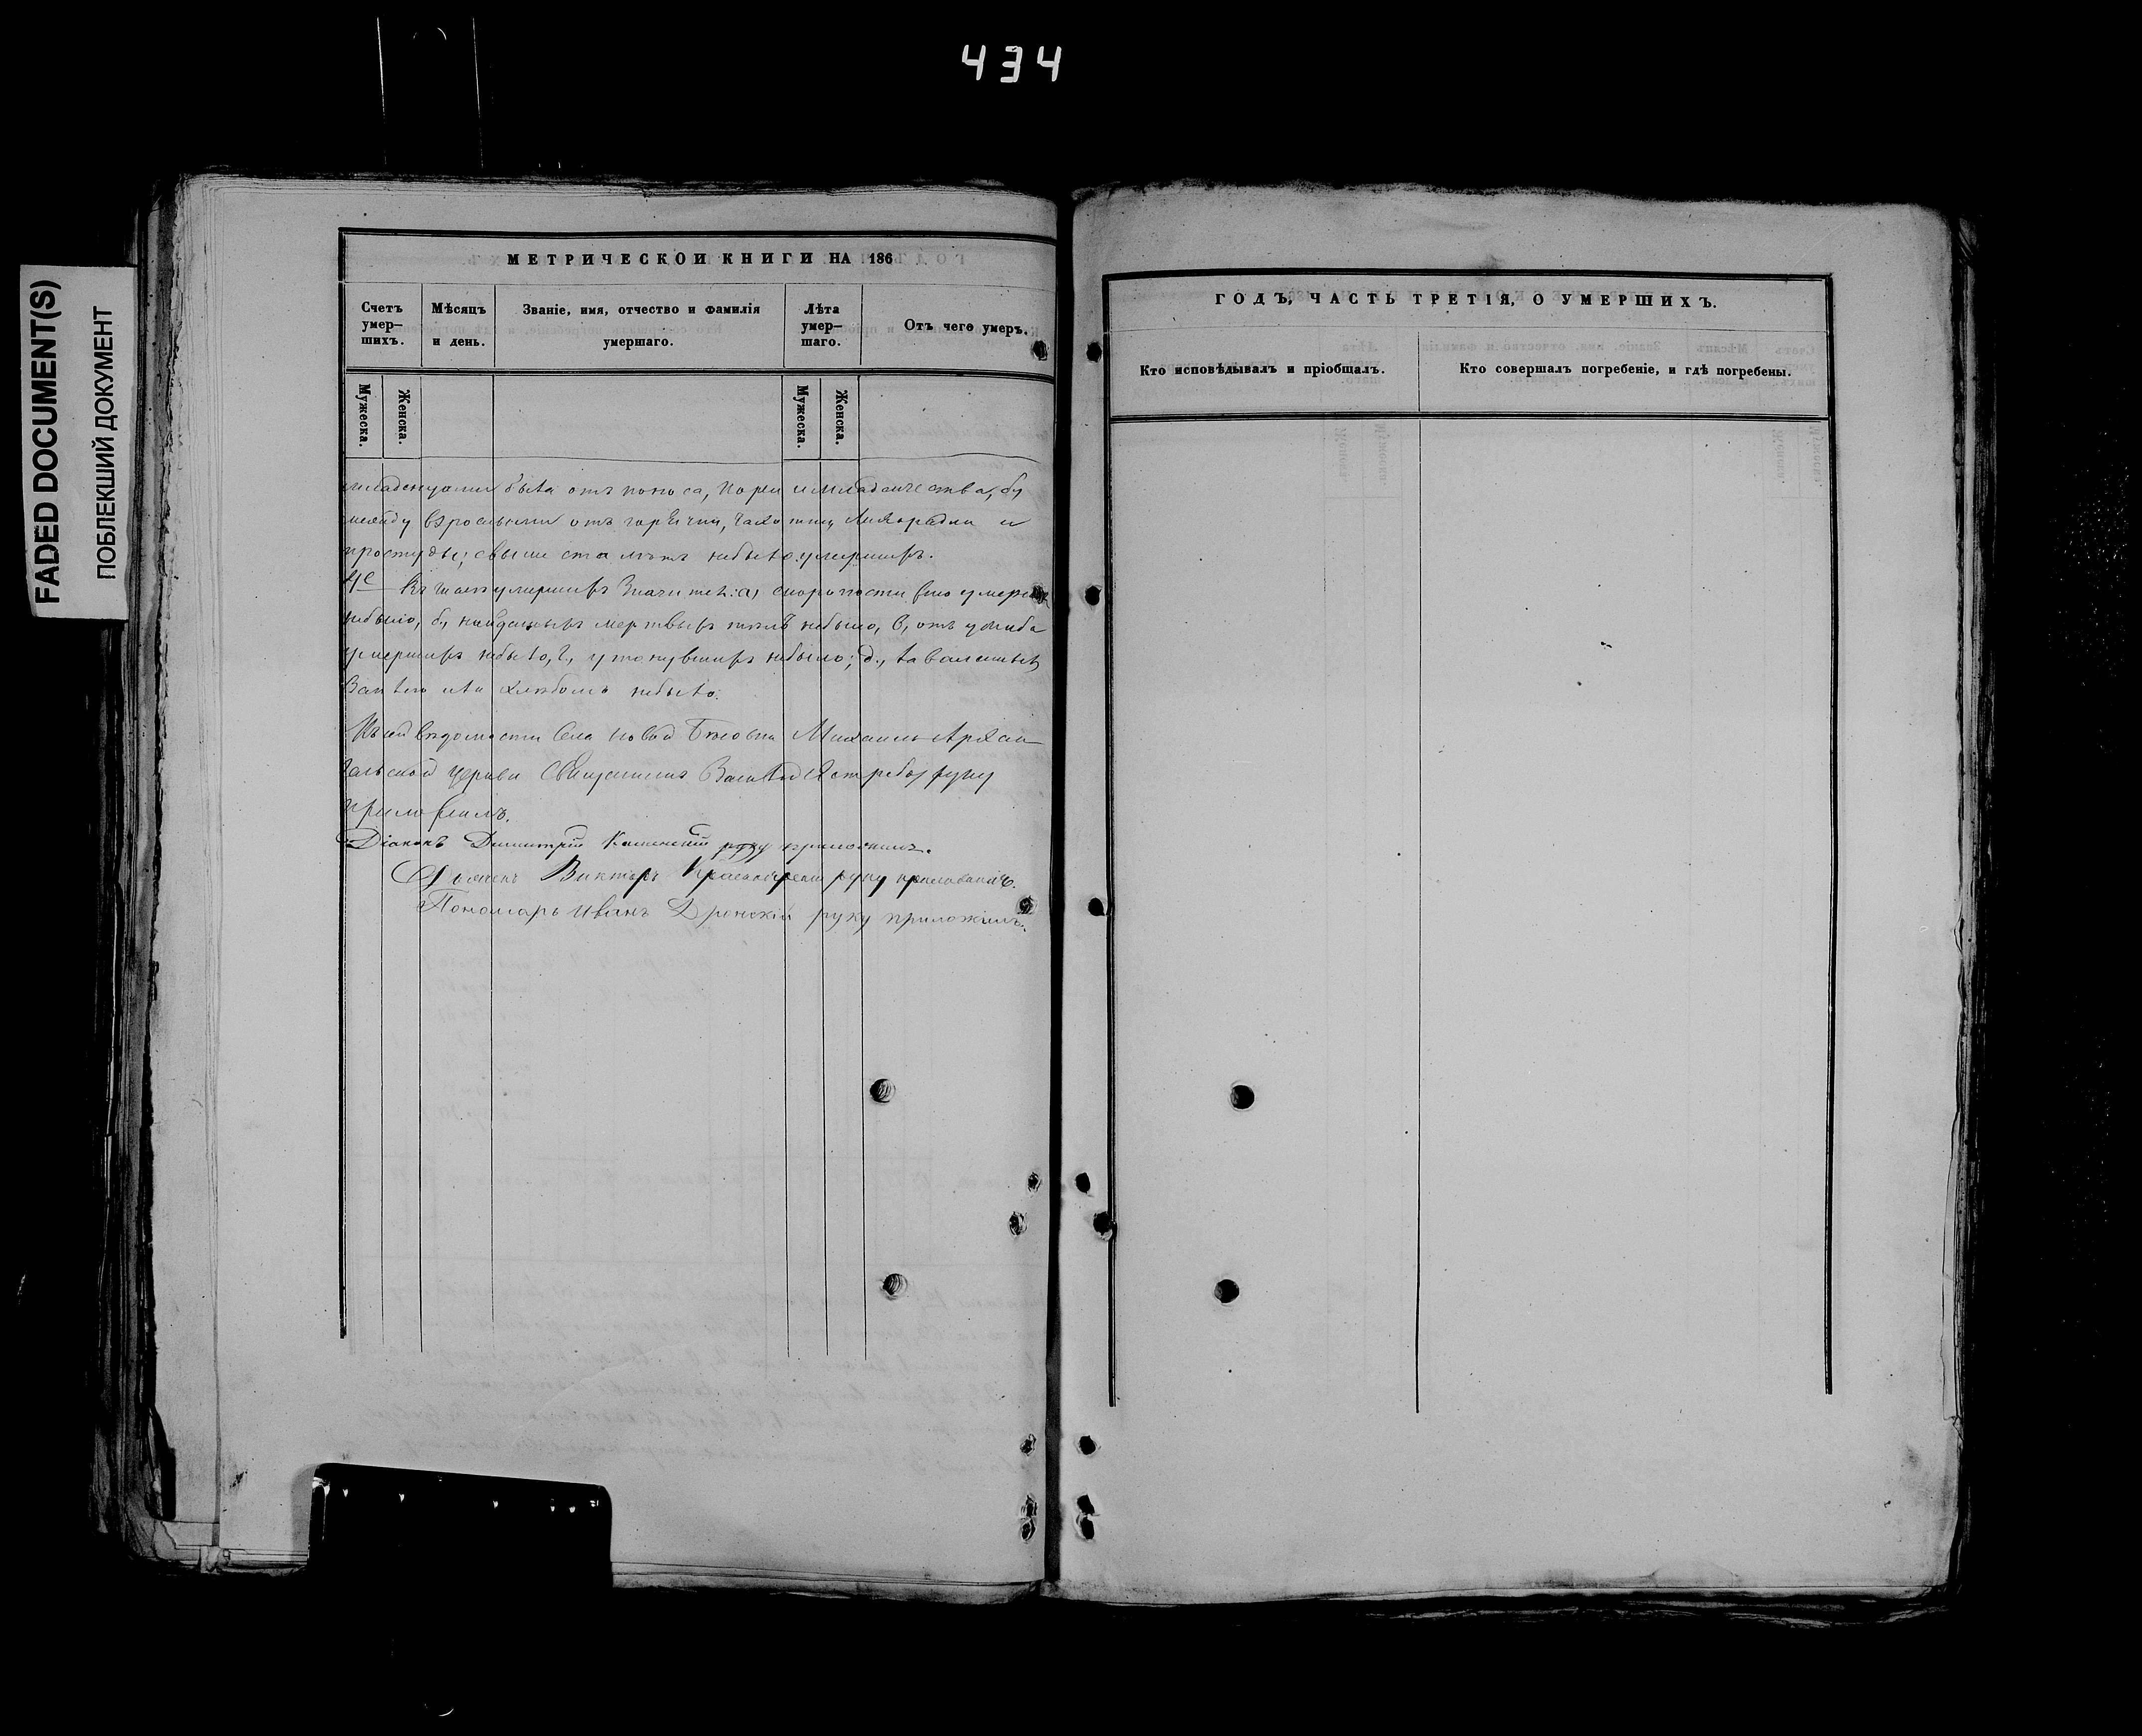 434
FADED DOCUMENT(S)
ПОБЛЕКШИЙ ДОКУМЕНТ
МЕТРИЧЕСКОЙ КНИГИ НА 186
Счетъ умер— шихъ.
Мѣсяцъ и день.
Званіе, имя, отчество и фамилія умершаго.
Лѣта умер— шаго.
Отъ чего умеръ.
Мужеска.
Женска.
Мужеска.
Женска.
младенцами была отъ поноса, кори и младенчества, б,
между взрослыми отъ горячки, чахотки, лихорадки и
простуды; свыше ста лѣтъ небыло умершихъ.
4е умершихъ а, скоропостижно
небыло, б, найденныхъ мертвыхъ тѣлъ небыло, в, отъ
умершихъ небыло, г, утонувшихъ небыло; д,
или небыло.
Къ сей вѣдомости села Новой Михаило Архан
гельской церкви Священникъ Василій Ястребов руку
приложилъ.
Діаконъ Димитрій Каменскій руку приложилъ.
Дьячекъ Викторъ руку приложилъ.
Пономарь Иванъ Дронскій руку приложилъ.
ГОДЪ, ЧАСТЬ ТРЕТІЯ, О УМЕРШИХЪ.
Кто исповѣдывалъ и пріобщалъ.
Кто совершалъ погребеніе, и гдѣ погребены.